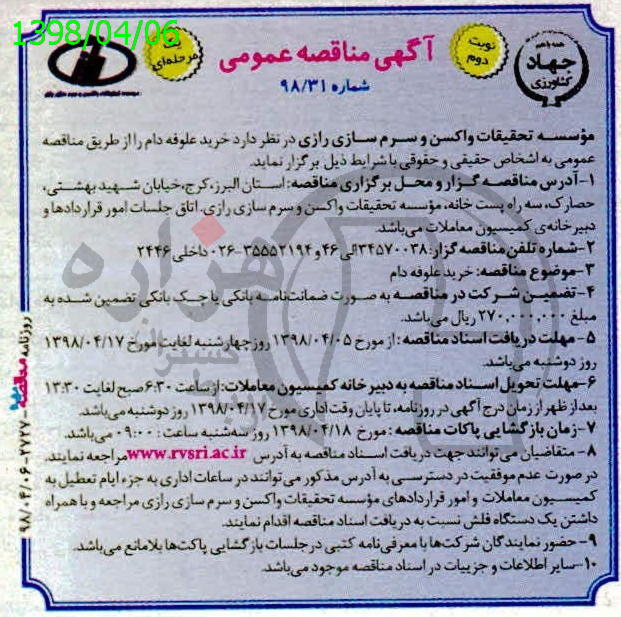 1398/04/06
جهاد
کشاورزی
نوبت
دوم
آگهی مناقصه عمومی
مرحله‌ای
شماره ۹۸/۳۱
مؤسسه تحقیقات واکسن و سرم سازی رازی در نظر دارد خرید علوفه دام را از طریق مناقصه
عمومی به اشخاص حقیقی و حقوقی با شرایط ذیل برگزار نماید.
۱-آدرس مناقصه گزار و محل برگزاری مناقصه: استان البرز، کرج، خیابان شهید بهشتی،
حصارک، سه راه پست خانه، مؤسسه تحقیقات واکسن و سرم سازی رازی. اتاق جلسات امور قراردادها و
دبیرخانه‌ی کمیسیون معاملات می‌باشد.
۲-شماره تلفن مناقصه گزار: ۳۴۵۷۰۰۳۸ الی ۴۶ و ۳۵۵۵۲۱۹۴-۰۲۶ داخلی ۲۴۴۶
۳-موضوع مناقصه: خرید علوفه دام
۴-تضمین شرکت در مناقصه به صورت ضمانت‌نامه بانکی یا چک بانکی تضمین شده به
مبلغ ۲۷۰,۰۰۰,۰۰۰ ریال می‌باشد.
۵- مهلت دریافت اسناد مناقصه: از مورخ ۱۳۹۸/۰۴/۰۵ روز چهارشنبه لغایت مورخ ۱۳۹۸/۰۴/۱۷
روز دوشنبه می‌باشد.
۶-مهلت تحویل اسناد مناقصه به دبیرخانه کمیسیون معاملات: از ساعت ۶:۳۰ صبح لغایت ۱۳:۳۰
بعد از ظهر از زمان درج آگهی در روزنامه، تا پایان وقت اداری مورخ ۱۳۹۸/۰۴/۱۷ روز دوشنبه می‌باشد.
۷-زمان بازگشایی پاکات مناقصه: مورخ ۱۳۹۸/۰۴/۱۸ روز سه‌شنبه ساعت: ۰۹:۰۰ می‌باشد.
۸- متقاضیان می‌توانند جهت دریافت اسناد مناقصه به آدرس www.rvsri.ac.ir مراجعه نمایند.
در صورت عدم موفقیت در دسترسی به آدرس مذکور می‌توانند در ساعات اداری به جزء ایام تعطیل به
کمیسیون معاملات و امور قراردادهای مؤسسه تحقیقات واکسن و سرم سازی رازی مراجعه و با همراه
داشتن یک دستگاه فلش نسبت به دریافت اسناد مناقصه اقدام نمایند.
۹-حضور نمایندگان شرکت‌ها با معرفی‌نامه کتبی در جلسات بازگشایی پاکت‌ها بلامانع می‌باشد.
۱۰-سایر اطلاعات و جزییات در اسناد مناقصه موجود می‌باشد.
روزنامه مناقصه - ۲۷۲۷ - ۹۸/۰۴/۰۶
هزاره